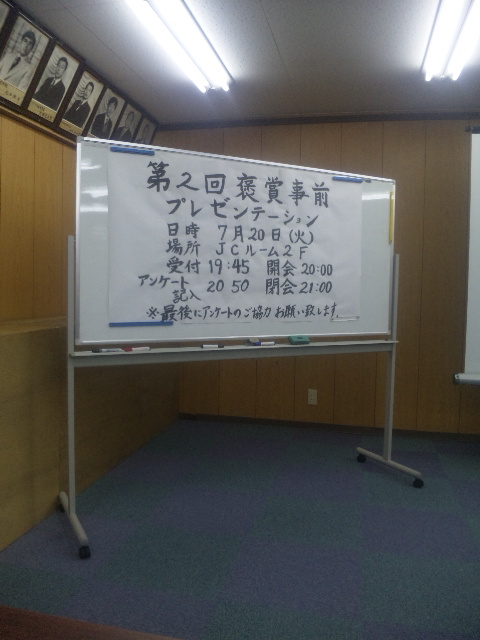 第2回褒賞事前
プレゼンテーション
日時 7月20日(火)
場所 JCルーム2F
受付 19:45 開会 20:00
アンケート記入 20 50 閉会 21:00
※最後にアンケートのご協力お願い致します。